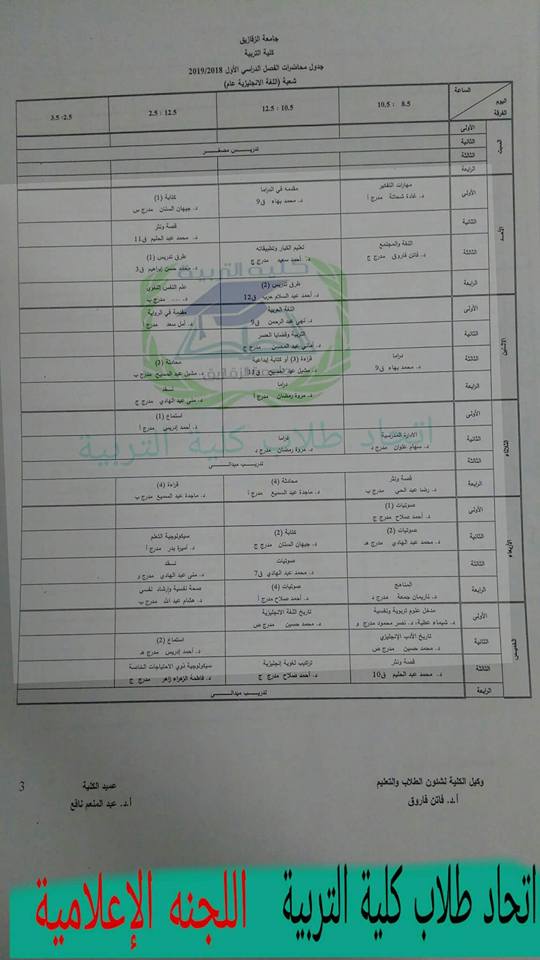 جامعة الزقازيق
كلية التربية
جدول محاضرات الفصل الدراسي الأول 2019/2018
شعبة (اللغة الانجليزية عام)
الساعة
اليوم
الفرقة
8.5 : 10.5
10.5 : 12.5
12.5 : 2.5
2.5- 3.5
السبت
الأولى
الثانية
الثالثة
الرابعة
تدريس مصغر
الأحد
الأولى
مهارات التفكير
د. غادة شحاتة مدرج أ
مقدمه في الدراما
د. محمد بهاء ق9
كتابة (1)
د. جيهان السنتان مدرج س
الثانية
قصة ونثر
د. محمد عبد الحليم ق11
الثالثة
اللغة والمجتمع
د. فاتن فاروق مدرج ج
تعليم الكبار وتطبيقاته
د. أحمد سعيد مدرج ج
طرق تدريس (1)
د. محمد حسن إبراهيم ق3
الرابعة
طرق تدريس (2)
د. أحمد عبد السلام حرب ق12
علم النفس اللغوي
د. ..... مدرج ب
الاثنين
الأولى
اللغة العربية
د. نهي عبد الرحمن ق9
مقدمة في الرواية
د. أمل سعد مدرج
الثانية
التربية وقضايا العصر
مدرج ج
الثالثة
دراما
د. محمد بهاء ق9
قراءة (3) أو كتابة إبداعية
د. مشيل عبد المسيح ق11
محادثة (3)
د. مشيل عبد المسيح مدرج ب
الرابعة
دراما
د. مروة رمضان مدرج أ
نقد
د. منى عبد الهادي مدرج ج
الثلاثاء
الأولى
استماع (1)
د. أحمد إدريس مدرج أ
الثانية
الادارة المدرسية
د. سهام علوان مدرج د
دراما
د. مروة رمضان مدرج د
الثالثة
تدريب ميداني
الرابعة
قصة ونثر
د. رضا عبد الحي مدرج ب
محادثة (4)
د. ماجدة عبد السميع مدرج أ
قراءة (4)
د. ماجدة عبد السميع مدرج ب
الأربعاء
الأولى
صوتيات (1)
د. أحمد صلاح مدرج ج
الثانية
صوتيات (2)
د. محمد عبد الهادي مدرج هـ
كتابة (2)
د. جيهان السنتان مدرج ج
سيكولوجية التعلم
د. أميرة بدر مدرج أ
الثالثة
صوتيات
د. محمد عبد الهادي ق7
نقد
د. منى عبد الهادي مدرج و
الرابعة
المناهج
د. ناريمان جمعة مدرج د
صوتيات (4)
د. أحمد صلاح مدرج أ
صحة نفسية وإرشاد نفسي
د. هشام عبد الله مدرج ب
الخميس
الأولى
مدخل علوم تربوية ونفسية
د. شيماء عطية، د. نسر محمود مدرج و
تاريخ اللغة الانجليزية
د. محمد حسين مدرج ص
الثانية
تاريخ الأدب الإنجليزي
د. محمد حسين مدرج ص
استماع (2)
د. أحمد إدريس مدرج هـ
الثالثة
قصة ونثر
د. محمد عبد الحليم ق10
تراكيب لغوية إنجليزية
د. أحمد صلاح مدرج ج
سيكولوجية ذوي الاحتياجات الخاصة
د. فاطمة الزهراء زاهر مدرج ج
الرابعة
تدريب ميداني
كلية التربية
اتحاد طلاب كلية التربية
وكيل الكلية لشئون الطلاب والتعليم
أ.د. فاتن فاروق
عميد الكلية
أ.د. عبد المنعم نافع
3
اتحاد طلاب كلية التربية اللجنه الإعلامية